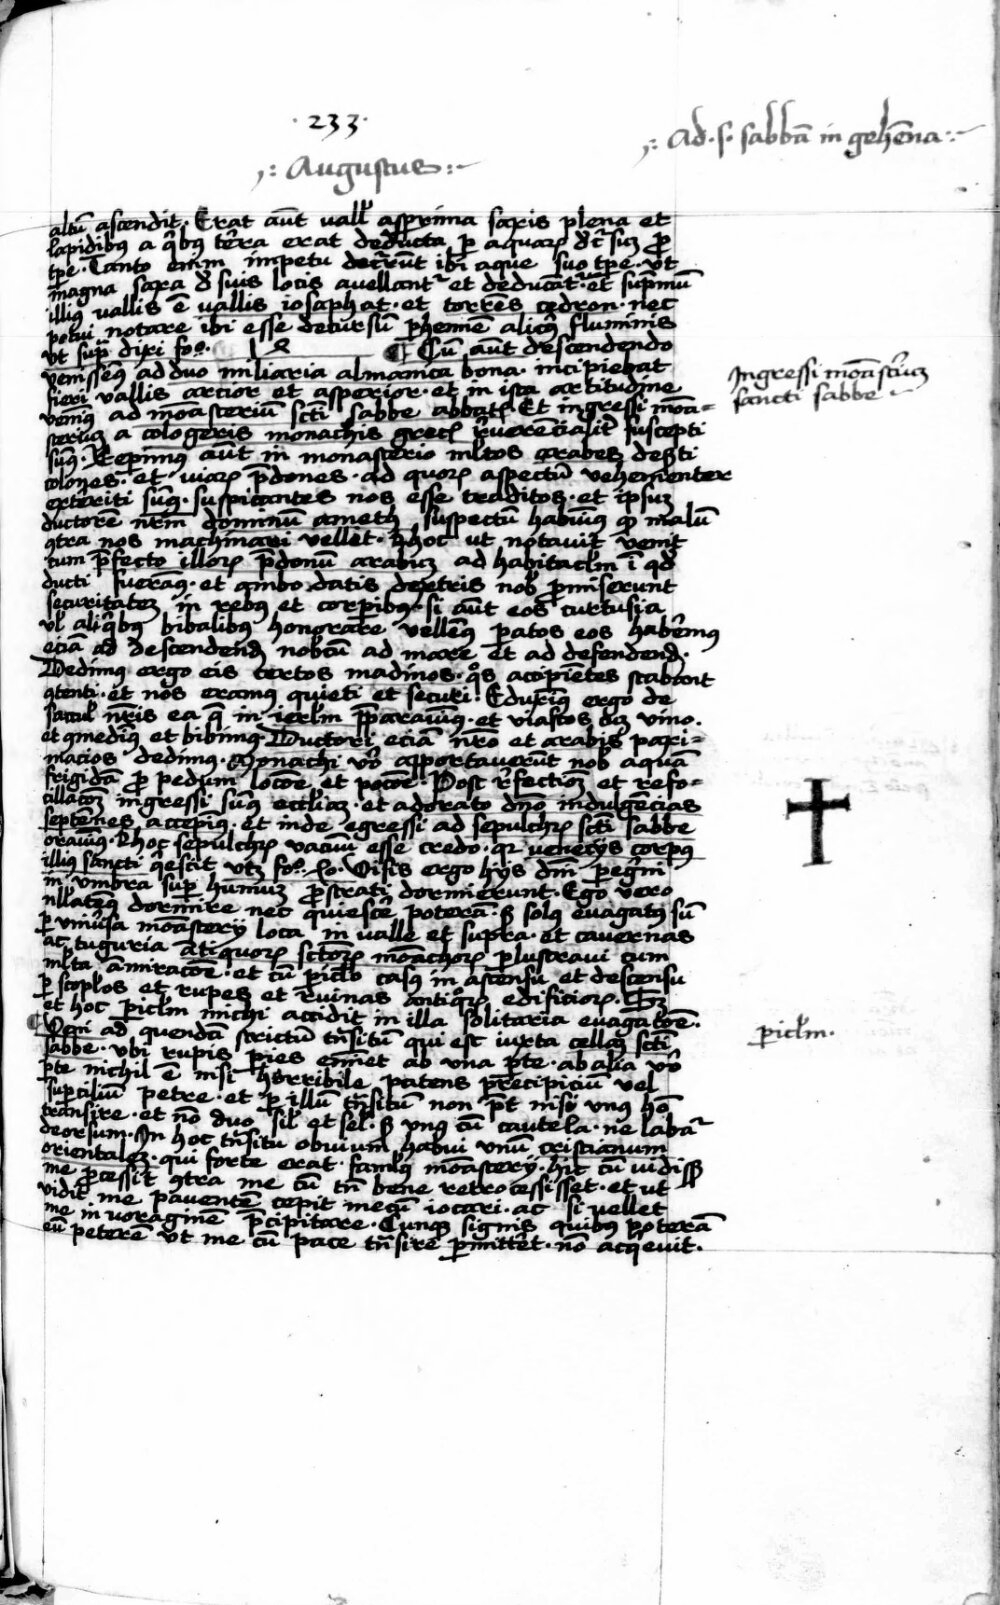 · 233 ·
Ad · s · sabbā in gehēna
Augustus
altū ascendit · Erat aūt vall' asprima saxis plena et
lapidibus a q̄bus tēra erat deducta p aquarꝫ dc̄rsuꝫ pro
tp̄e · Tanto enim impetu decurrūt ibi aque suo tp̄e · vt
magna saxa d' suis locis avellant̄ et deducāt · et supmū
illius vallis ē vallis iosaphat · et torrēs cedron · nec
potui notare ibi esse decursū p̄hennē alicuiꝰ fluminis
vt sup̄ dixi fo ·
¶ Cū aūt descendendo
venisseꝰ ad duo miliaria almanica bona · incipiebat
fieri vallis arcior et asperior · et in ista artitudine
venimꝰ ad moāsteriū scti sabbe abbatꝭ Et ingressi moā=
steriuꝫ a cologeris monachis grecꝭ reverēcialit' suscepti
sumꝰ · Repimꝰ aūt in monasterio ml'tos arabes des'ti
colones · et viarꝫ p̄dones · ad quorꝫ aspectū vehementer
exterriti sumꝰ · suspicantes nos esse traditos · et ipsum
ductorē nr̄m dominū ameth suspectū habuimꝰ qꝫ malū
ꝯtra nos machinari vellet · Et hoc ut notavit venit
cum p̄fecto illorꝫ p̄donū arabuꝫ ad habitaclm̄ ī qd'
ducti fueramꝰ · et ambo datis dextris nob̄ promiserunt
securitateꝫ in rebꝰ et corpibꝰ · si aūt eos curtusia
vl' aliq̄bus bibalibus honorare vellemꝰ paratos eos haberemꝰ
eciā ad descendendꝫ nobcū ad mare et ad defendendꝫ ·
Dedimꝰ ergo eis certos madinos · q̄s accipiētes stabant
ꝯtenti · et nos eramꝰ quieti et securi · Eduximꝰ ergo de
saccul' nr̄is ea q̄ in ierl'm p̄paravimꝰ · et vtastos cuꝫ vino ·
et ꝯmedimꝰ et bibimꝰ · Ductori eciā nr̄o et arabis paxi=
macios dedimꝰ · Monachi vo apportaverūt nob̄ aquā
frigidā pro pedum locōe et pocōe · Post refectioꝫ et refo=
cillacōꝫ ingressi sumꝰ eccl'iaꝫ · et adorato dn̄o indulgēcias
septēnes accepimꝰ · et inde egressi ad sepulchrꝫ scti sabbe
oravimꝰ · Et hoc sepulchrꝫ vacuū esse credo · qr venecijs corpꝰ
illius sancti q̄escit vt fo · Visis ergo hijs dn̄i peḡni
in vmbra sup humuꝫ prostrati dormierunt · Ego vero
nllaten̄ꝰ dormire nec quiesce' poterā · s' solꝰ evagatꝰ sū
p vniu'sa moāsterij loca in valle et supra · et cavernas
ac tuguria ātiquorꝫ sctorꝫ moāchorꝫ plustravi cum
ml'ta āmiracōe · et cū picl'o casꝰ in ascensu et descensu
p scopl'os et rupes et ruinas antiqorꝫ edificiorꝫ ·
et hoc picl'm michi accidit in illa solitaria evagatōe ·
¶ Veni ad quendā strictū trn̄situ qui est iuxta cellaꝫ scti
sabbe · vbi rupis pies eminet ab una pte · ab alia vo
pte nichil ē nisi horribile patens precipiciū vel
supciliū petre · et p illū trn̄sitū non pōt nisi vnꝰ hō
transire · et nō duo sil' et sel' · s' vnꝰ cū cautela · ne labat̄
deorsum · In hoc trn̄situ obvium habui vnū cristianum
orientaleꝫ · qui forte erat famulꝰ moāsterij · hic cū vidissꝫ
me processit ꝯtra me cū tn̄ bene retrocessisset · et ut
vidit me paventē cepit mecū iocari · ac si vellet
me in voraginē p̄cipitare · Cunqꝫ signis quibus poterā
eū peterē vt me cū pace trn̄sire p̄mittet · nō acq̄evit ·
Ingressi moāsteriuꝫ
sancti sabbe
picl'm ·